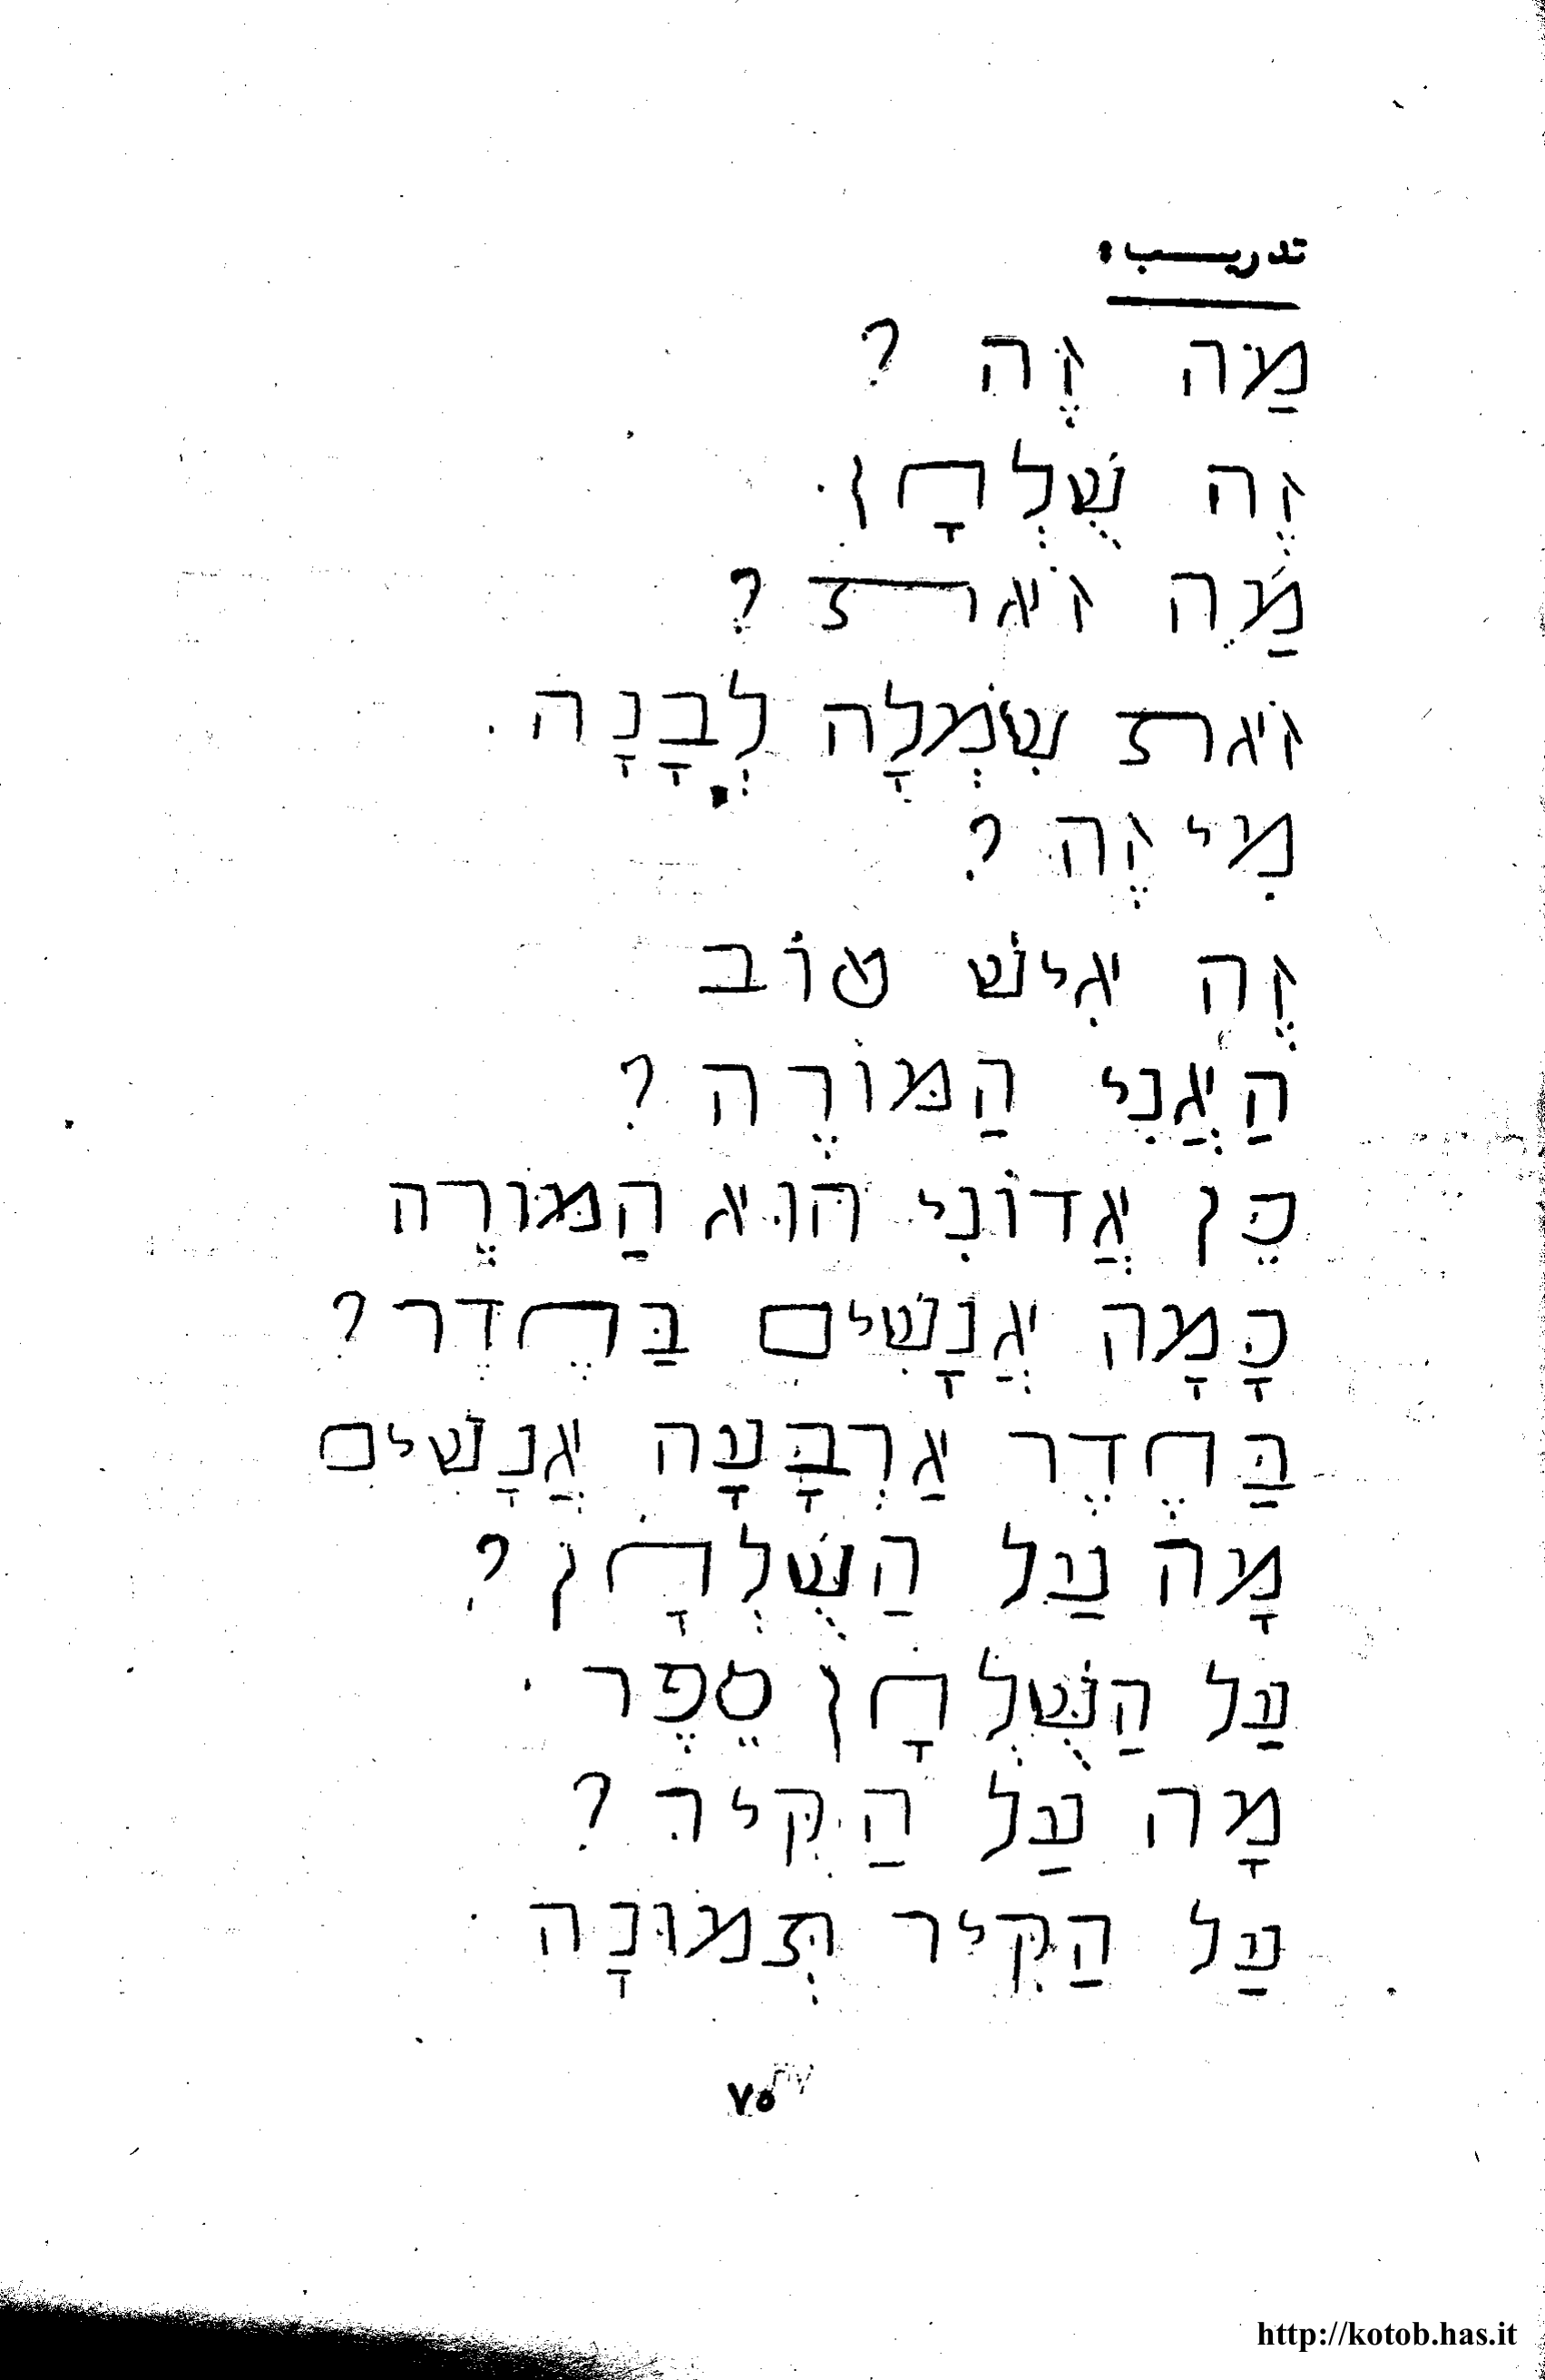 تدريب :
מַה זֶה ?
זֶה שֻׁלְחָן .
מַה זֹאת ?
זֹאת שִׂמְלָה לְבָנָה .
מִי זֶה ?
זֶה אִישׁ טוֹב
הַאֲנִי הַמּוֹרֶה ?
כֵּן אֲדוֹנִי הוּא הַמּוֹרֶה
כָּמָה אֲנָשִׁים בַּחֶדֶר ?
בַּחֶדֶר אַרְבָּעָה אֲנָשִׁים
מָה עַל הַשֻּׁלְחָן ?
עַל הַשֻּׁלְחָן סֵפֶר .
מָה עַל הַקִּיר ?
עַל הַקִּיר תְּמוּנָה .
٧٥
http://kotob.has.it